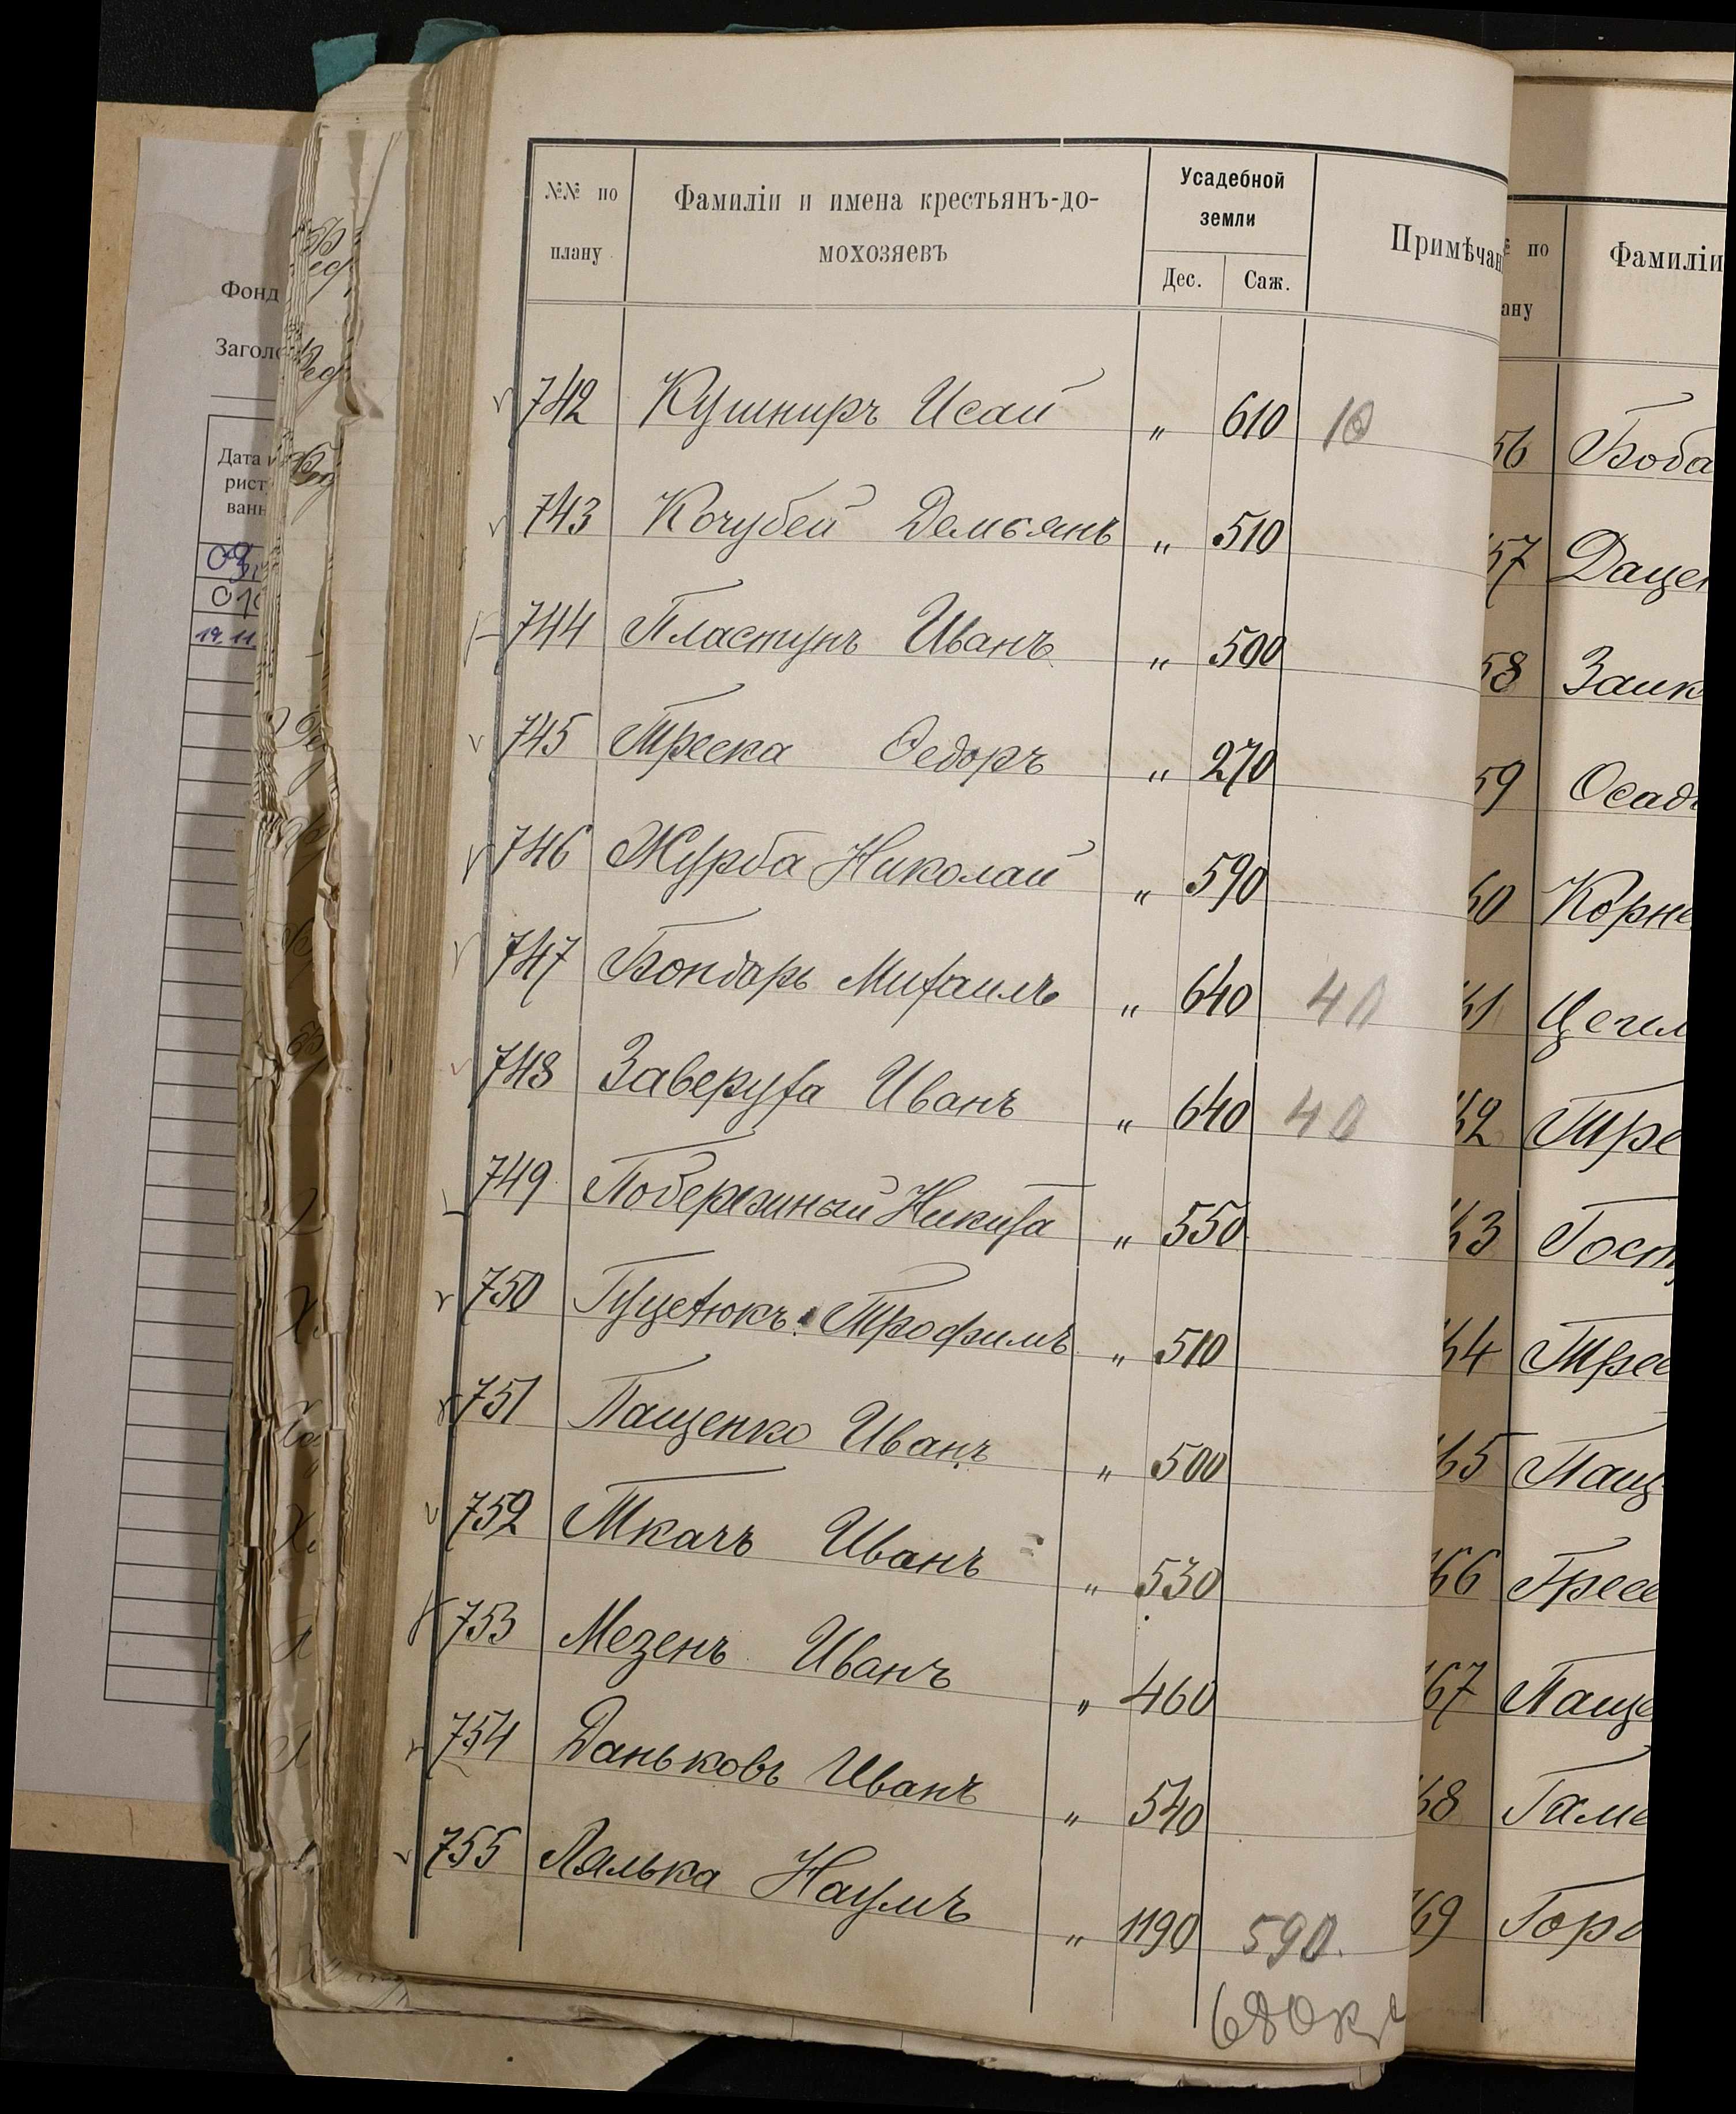 №№ по плану
Фамиліи и имена крестьянъ-до-
мохозяевъ
Усадебной
земли
Дес. Саж.
Примѣчан
742 Кушниръ Исай „ 610 10
743 Кочубей Демьянъ „ 510
744 Пластунъ Иванъ „ 500
745 Треска Ѳедоръ „ 270
746 Журба Николай „ 590
747 Бондарь Михаилъ „ 640 40
748 Заверуха Иванъ „ 640 40
749 Побережный Никита „ 550
750 Трофимъ „ 510
751 Пащенко Иванъ „ 500
752 Ткачъ Иванъ „ 530
753 Мезенъ Иванъ „ 460
754 Даньковъ Иванъ „ 540
755 Лялька Наумъ „ 1190 590.
680
№ по
ану
Фамиліи
56 Боба
57 Дацен
58 Заик
59 Осад
60 Корне
61 Цегел
62 Тре
63 Гост
64 Трес
65 Пащ
66 Трес
67 Паще
68 Гаме
69 Горо
Фонд
Заголо
Дата и
рист
ванн
19.11.